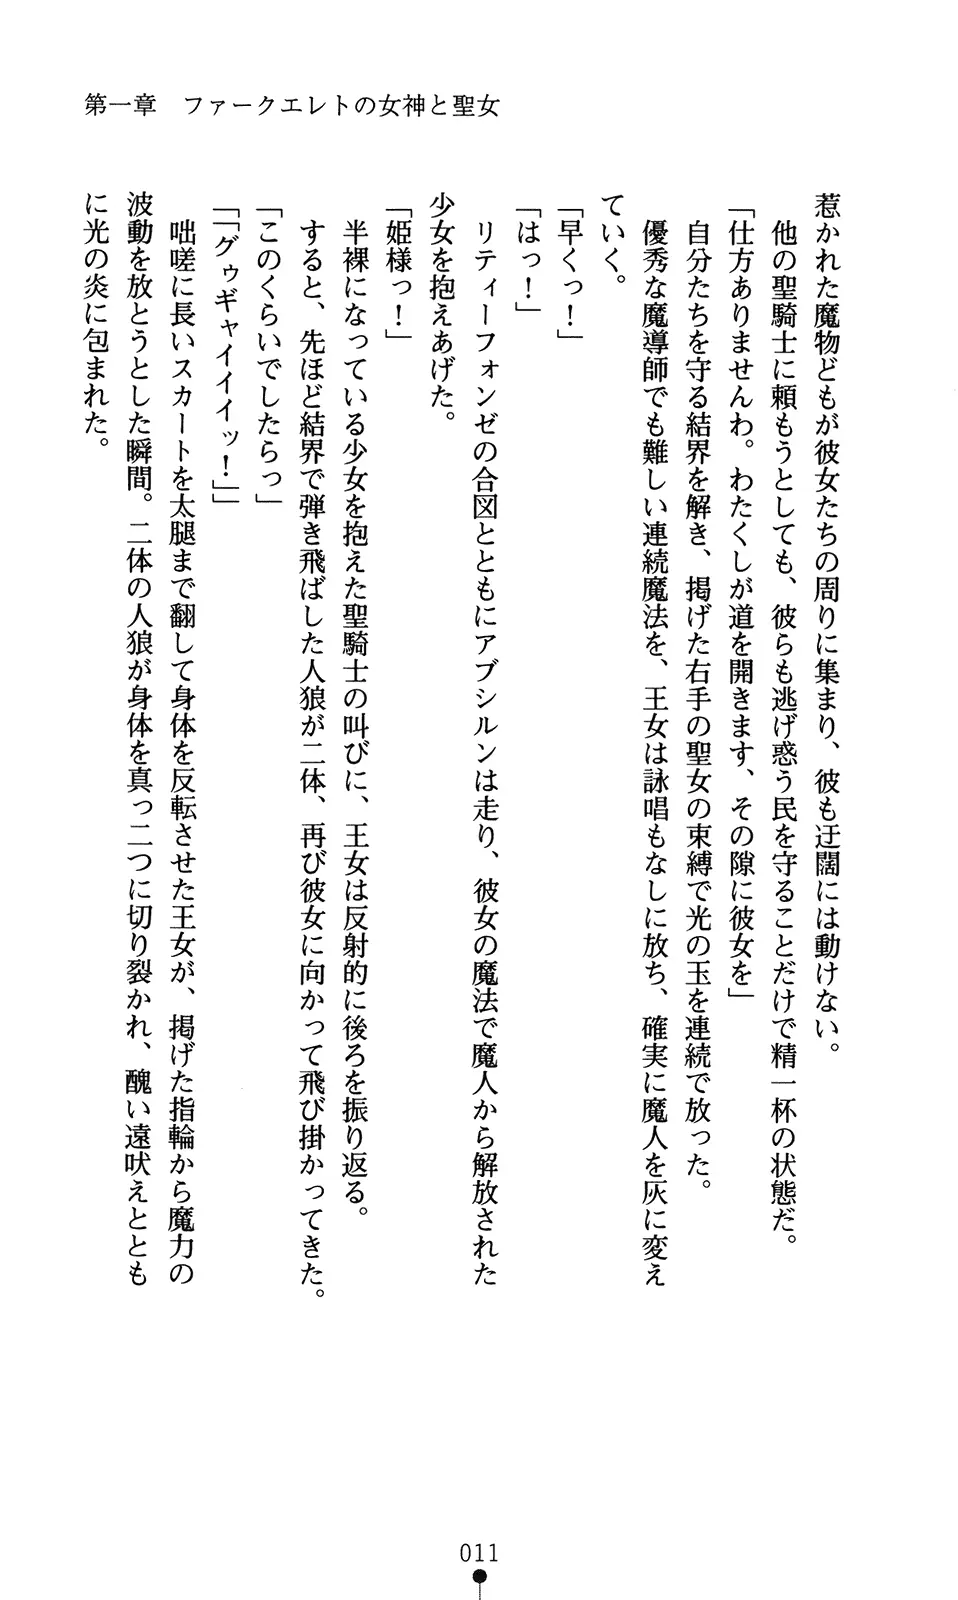 第一章　ファークエレトの女神と聖女
惹かれた魔物どもが彼女たちの周りに集まり、彼も迂闊には動けない。
他の聖騎士に頼もうとしても、彼らも逃げ惑う民を守ることだけで精一杯の状態だ。
「仕方ありませんわ。わたくしが道を開きます、その隙に彼女を」
自分たちを守る結界を解き、掲げた右手の聖女の束縛で光の玉を連続で放った。
優秀な魔導師でも難しい連続魔法を、王女は詠唱もなしに放ち、確実に魔人を灰に変え
ていく。
「早くっ！」
「はっ！」
リティーフォンゼの合図とともにアブシルンは走り、彼女の魔法で魔人から解放された
少女を抱えあげた。
「姫様っ！」
半裸になっている少女を抱えた聖騎士の叫びに、王女は反射的に後ろを振り返る。
すると、先ほど結界で弾き飛ばした人狼が二体、再び彼女に向かって飛び掛かってきた。
「このくらいでしたらっ」
「「グゥギャイイイッ！」」
咄嗟に長いスカートを太腿まで翻して身体を反転させた王女が、掲げた指輪から魔力の
波動を放とうとした瞬間。二体の人狼が身体を真っ二つに切り裂かれ、醜い遠吠えととも
に光の炎に包まれた。
011